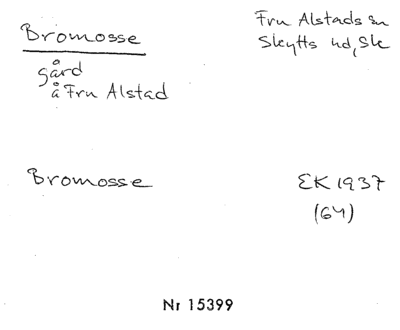 Bromosse
Fru Alstads sn
Skytts hd, Sk
gård
å Fru Alstad
Bromosse
EK 1937
(64)
Nr 15399